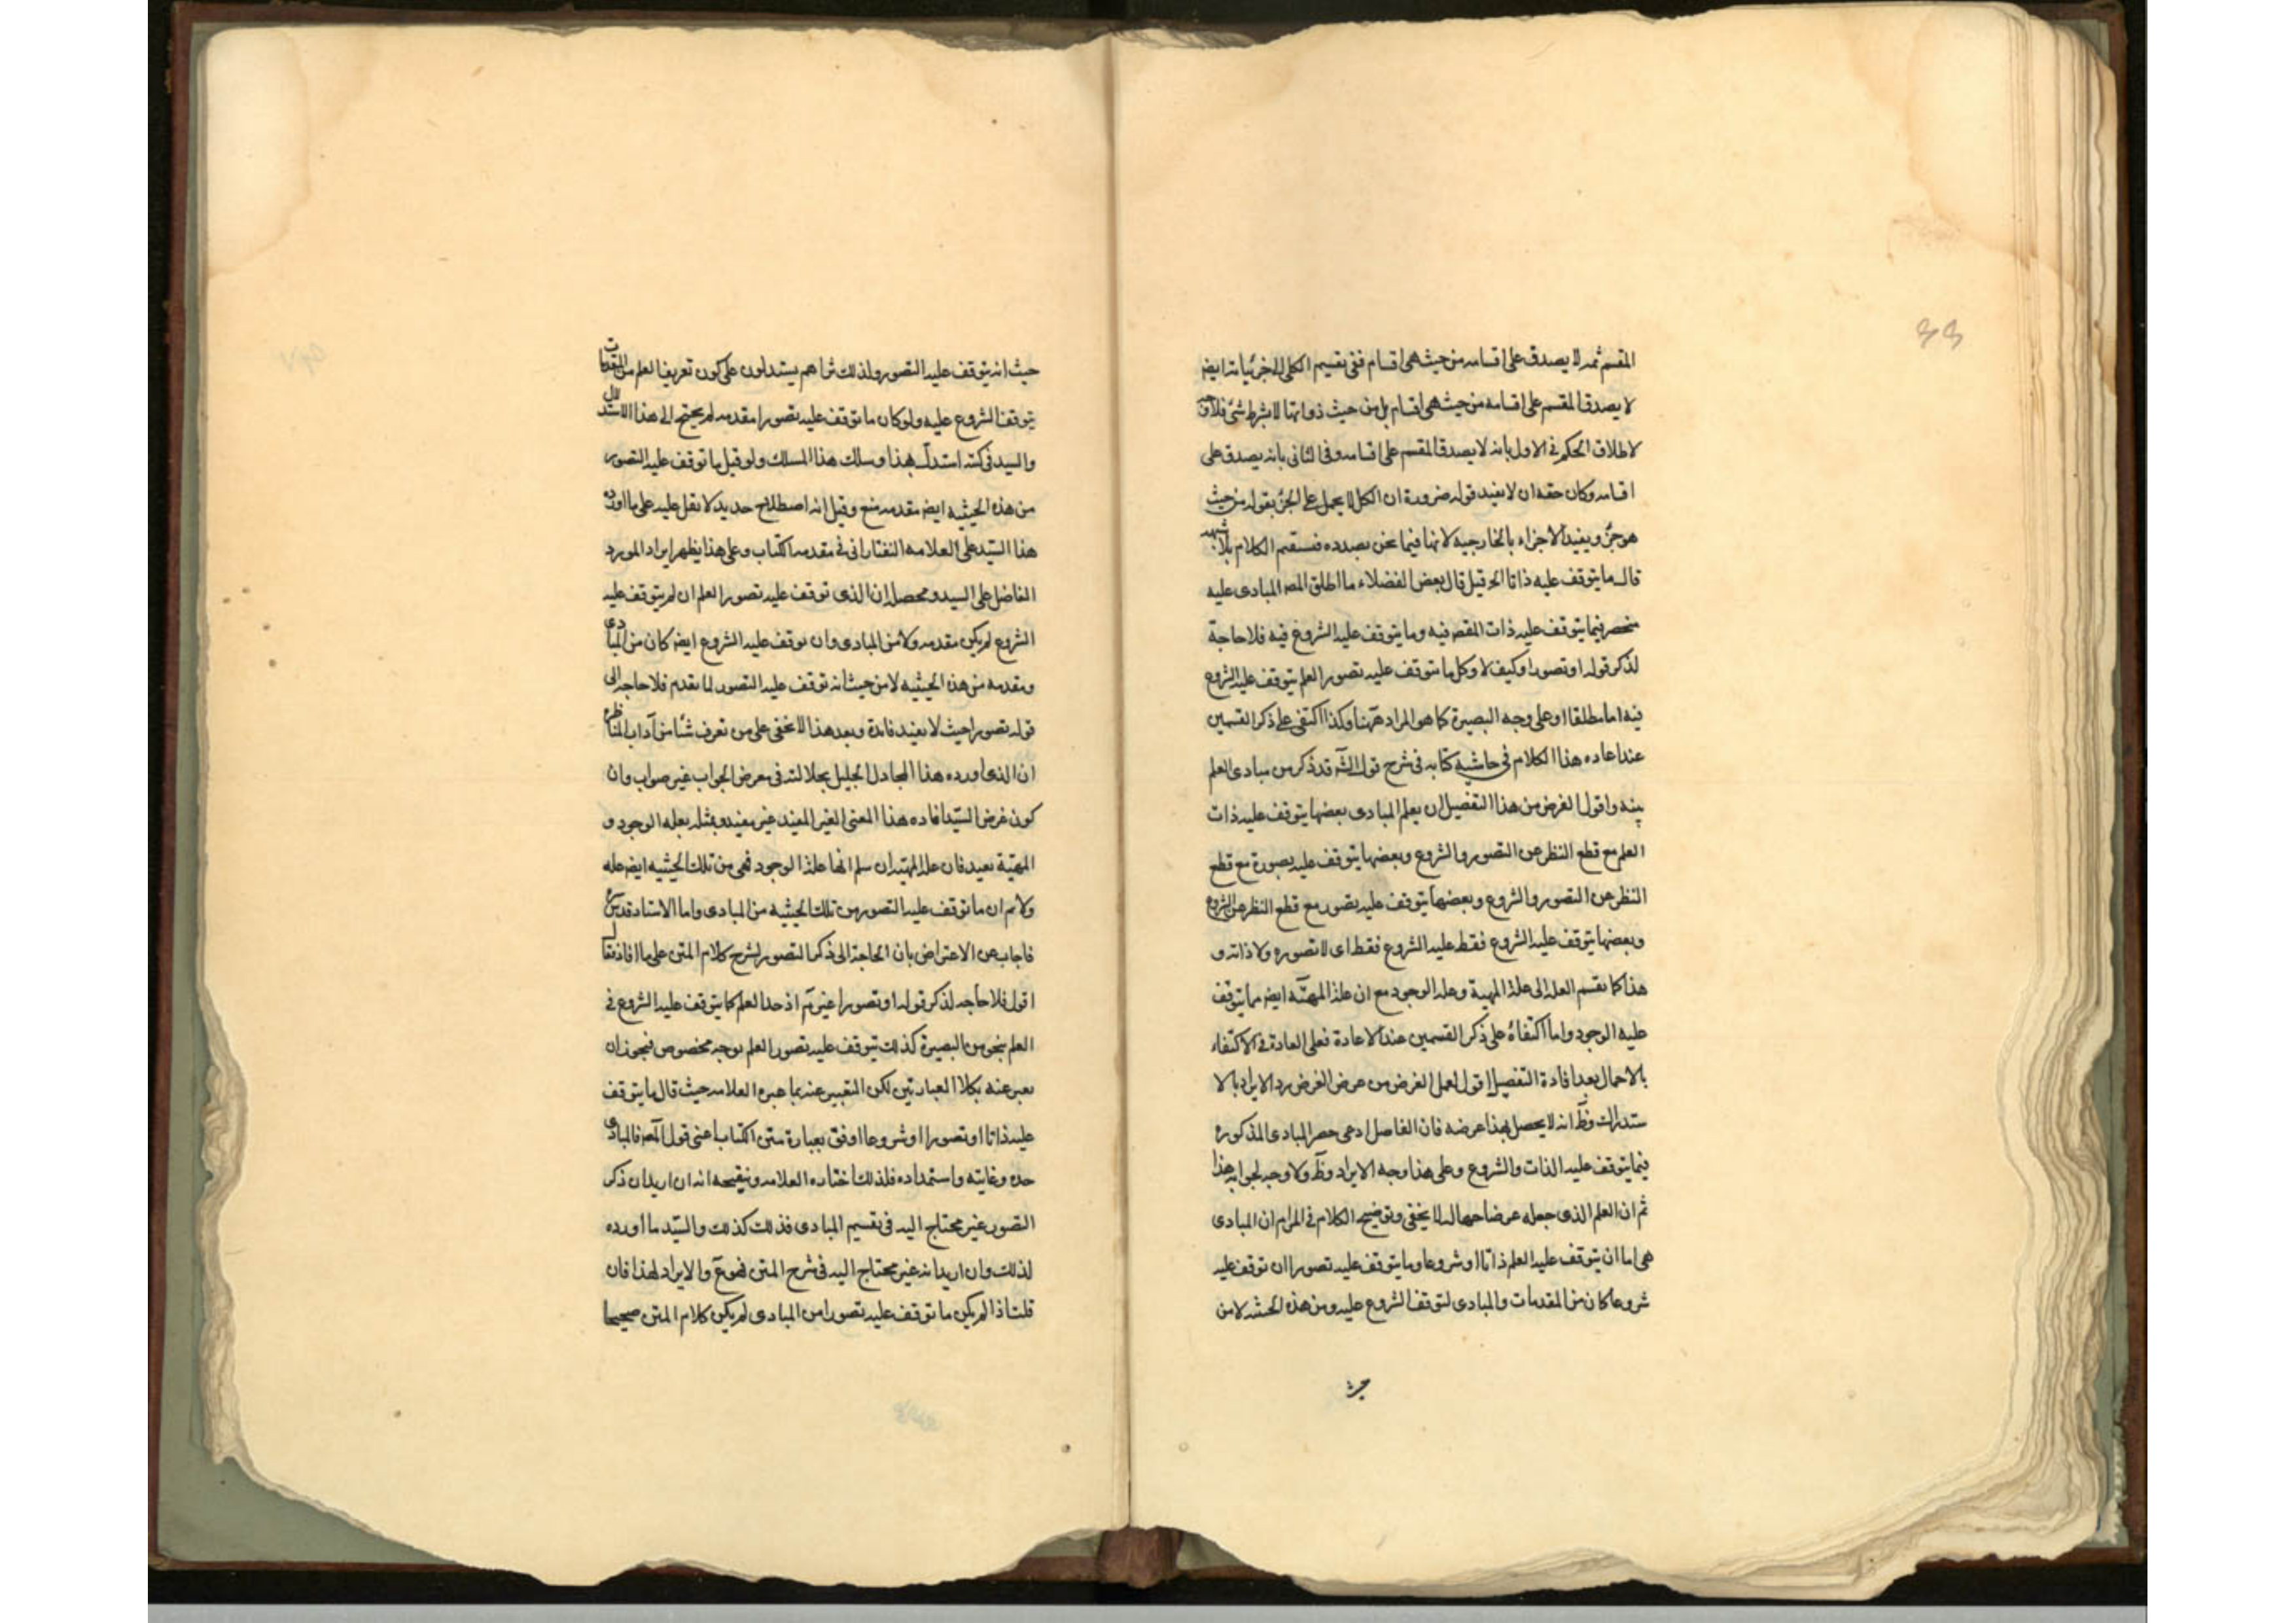 المقسم ثمه لا يصدق على اقسامه من حيث هى اقسام ففى تقسيم الكلى للجزئيات ايضا
لا يصدق المقسم على اقسامه من حيث هى اقسام بل من حيث ذواتها لا بشرط شئ فلا
لاطلاق الحكم فى الاول بانه لا يصدق المقسم على اقسامه وفى الثانى بانه يصدق على
اقسامه وكان حقه ان لا يفيد قوله ضرورة ان الكل لا يحمل على الجزء بقوله من حيث
هو جزء ويفيد الاجزاء بالخارجيه لانها فيما نحن بصدده فيستقيم الكلام بلا شبهه
قال ما يتوقف عليه ذاتا الخ قيل قال بعض الفضلاء ما اطلق المصه المبادى عليه
منحصر فيما يتوقف عليه ذات المقصه فيه وما يتوقف عليه الشروع فيه فلا حاجة
لذكر قوله او تصورا وكيف لا وكل ما يتوقف عليه تصور العلم يتوقف عليه الشروع
فيه اما مطلقا او على وجه البصيرة كما هو المراد ههنا وكذا اكتفى على ذكر القسمين
عند اعاده هذا الكلام فى حاشيه كتابه فى شرح قول الشه قد ذكر من مبادى العلم
بينه واقول الغرض من هذا التفصيل ان يعلم المبادى بعضها يتوقف عليه ذات
العلم مع قطع النظر عن التصور والشروع وبعضها يتوقف عليه بصورة مع قطع
النظر عن التصور والشروع وبعضها يتوقف عليه تصور مع قطع النظر عن الشروع
وبعضها يتوقف عليه الشروع فقط عليه الشروع فقط اى لا تصوره ولا ذاته و
هذا كما تقسم العله الى علة المهية وعله الوجود مع ان علة المهيّه ايضه مما يتوقف
عليه الوجود واما اكتفاؤه على ذكر القسمين عند الاعادة فعلى العادة فى الاكتفاء
بالاجمال بعد افادة التفصيل اقول لعل الغرض من عرض الغرض رد الايراد بالا
ستدراك وظ انه لا يحصل بهذا عرضه فان الفاضل ادعى حصر المبادى المذكوره
فيما يتوقف عليه الذات والشروع وعلى هذا وجه الايراد وظ ولا وجه لجوابه هذا
ثم ان العلم الذى جعله عرضا لا يخفى وتوضيح الكلام فى المرام ان المبادى
هى اما ان يتوقف عليه العلم ذاتا او شروعا وما يتوقف عليه تصورا ان توقف عليه
شروعا كان من المقدمات والمبادى لتوقف الشروع عليه ومن هذه الحيثيه لا من
حيث
حيث انه يتوقف عليه التصور ولذلك تراهم يستدلون على كون تعريف العلم من المقدمات
بتوقف الشروع عليه ولو كان ما توقف عليه تصورا مقدمه لم يحتج الى هذا الاستدلال
والسيد فى كتبه استدل بهذا وسلك هذا المسلك ولو قيل ما توقف عليه التصور
من هذه الحيثيه ايضه مقدمه منع وقيل انه اصطلاح جديد لا نقل عليه على ما اورده
هذا السّيد على العلامه التفتازانى فى مقدمه الكتاب وعلى هذا يظهر ايراد المورد
الفاضل على السيد ومحصله ان الذى توقف عليه تصور العلم ان لم يتوقف عليه
الشروع لم يكن مقدمه ولا من المبادى وان توقف عليه الشروع ايضه كان من المبادى
ومقدمه من هذه الحيثيه لا من حيث انه توقف عليه التصور لما تقدم فلا حاجه الى
قوله تصورا حيث لا يفيد فائدة وبعد هذا لا يخفى على من تعرف شيئا من آداب المناظره
ان الذى اورده هذا المجادل الجليل بجلالته فى معرض الجواب غير صواب وان
كون غرض السّيد افاده هذا المعنى الغير المفيد غير مفيد وبمثله بعله الوجود و
المهيّة بعيد فان علة المهيّة ان سلم انها علة الوجود فهى من تلك الحيثيه ايضه عله
ولا نم ان ما توقف عليه التصور من تلك الحيثيه من المبادى واما الاستاد قدس سره
فاجاب عن الاعتراض بان الحاجة الى ذكر التصور لشرح كلام المتن على ما افاد
اقول فلا حاجه لذكر قوله او تصورا غير تم اذ حد العلم كما يتوقف عليه الشروع فى
العلم بنحو من البصيرة كذلك يتوقف عليه تصور العلم بوجه مخصوص فيجوز ان
يعبر عنه بكلا العبارتين لكن التعبير عنه بما عبره العلامه حيث قال ما يتوقف
عليه ذاتا او تصورا او شروعا اوفق بعبارة متن الكتاب اعنى قول المصه فالمبادى
حده وغايته واستمداده فلذلك اختاره العلامه وتنقيحه انه ان اريد ان ذكر
التصور غير محتاج اليه فى تقسيم المبادى فذلك كذلك والسّيد ما اورده
لذلك وان اريد انه غير محتاج اليه فى شرح المتن فهو ع والايراد لهذا فان
قلت اذا لم يكن ما توقف عليه تصورا من المبادى لم يكن كلام المتن صحيحا